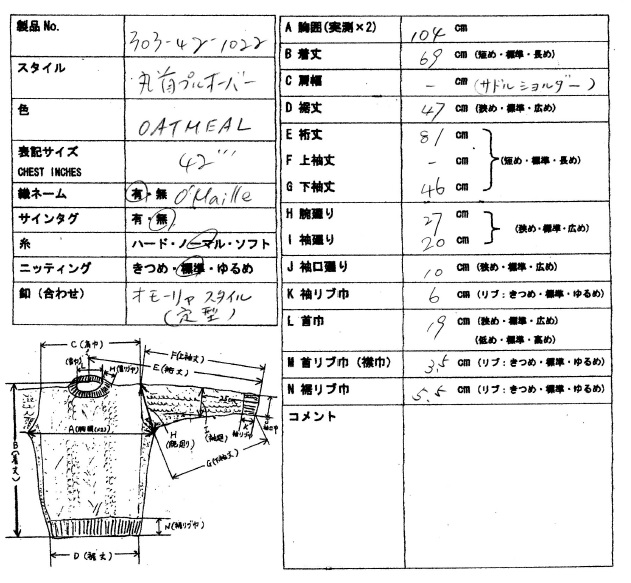 製品No. 303-42-1022
スタイル 丸首プルオーバー
色 OATMEAL
表記サイズ 42"
CHEST INCHES
織ネーム 有・無 O'Maille
サインタグ 有・無
糸 ハード・ノーマル・ソフト
ニッティング きつめ・標準・ゆるめ
釦(合わせ) オモーリャ スタイル
(定型)
A 胸囲(実測×2) 104 cm
B 着丈 69 cm (短め・標準・長め)
C 肩幅 - cm (サドルショルダー)
D 裾丈 47 cm (狭め・標準・広め)
E 裄丈 81 cm
F 上袖丈 - cm (短め・標準・長め)
G 下袖丈 46 cm
H 腕廻り 27 cm
(狭め・標準・広め)
I 袖廻り 20 cm
J 袖口廻り 10 cm (狭め・標準・広め)
K 袖リブ巾 6 cm (リブ:きつめ・標準・ゆるめ)
L 首巾 19 cm (狭め・標準・広め)
(低め・標準・高め)
M 首リブ巾(襟巾) 3.5 cm (リブ:きつめ・標準・ゆるめ)
N 裾リブ巾 5.5 cm (リブ:きつめ・標準・ゆるめ)
コメント
C(肩巾)
F(上袖丈)
E(裄丈)
L
(首巾)
M(首リブ巾)
A(胸囲(×2))
B(着丈)
H
(腕廻り)
I
(袖廻)
K
袖リブ巾
J
G(下袖丈)
N(裾リブ巾)
D(裾丈)